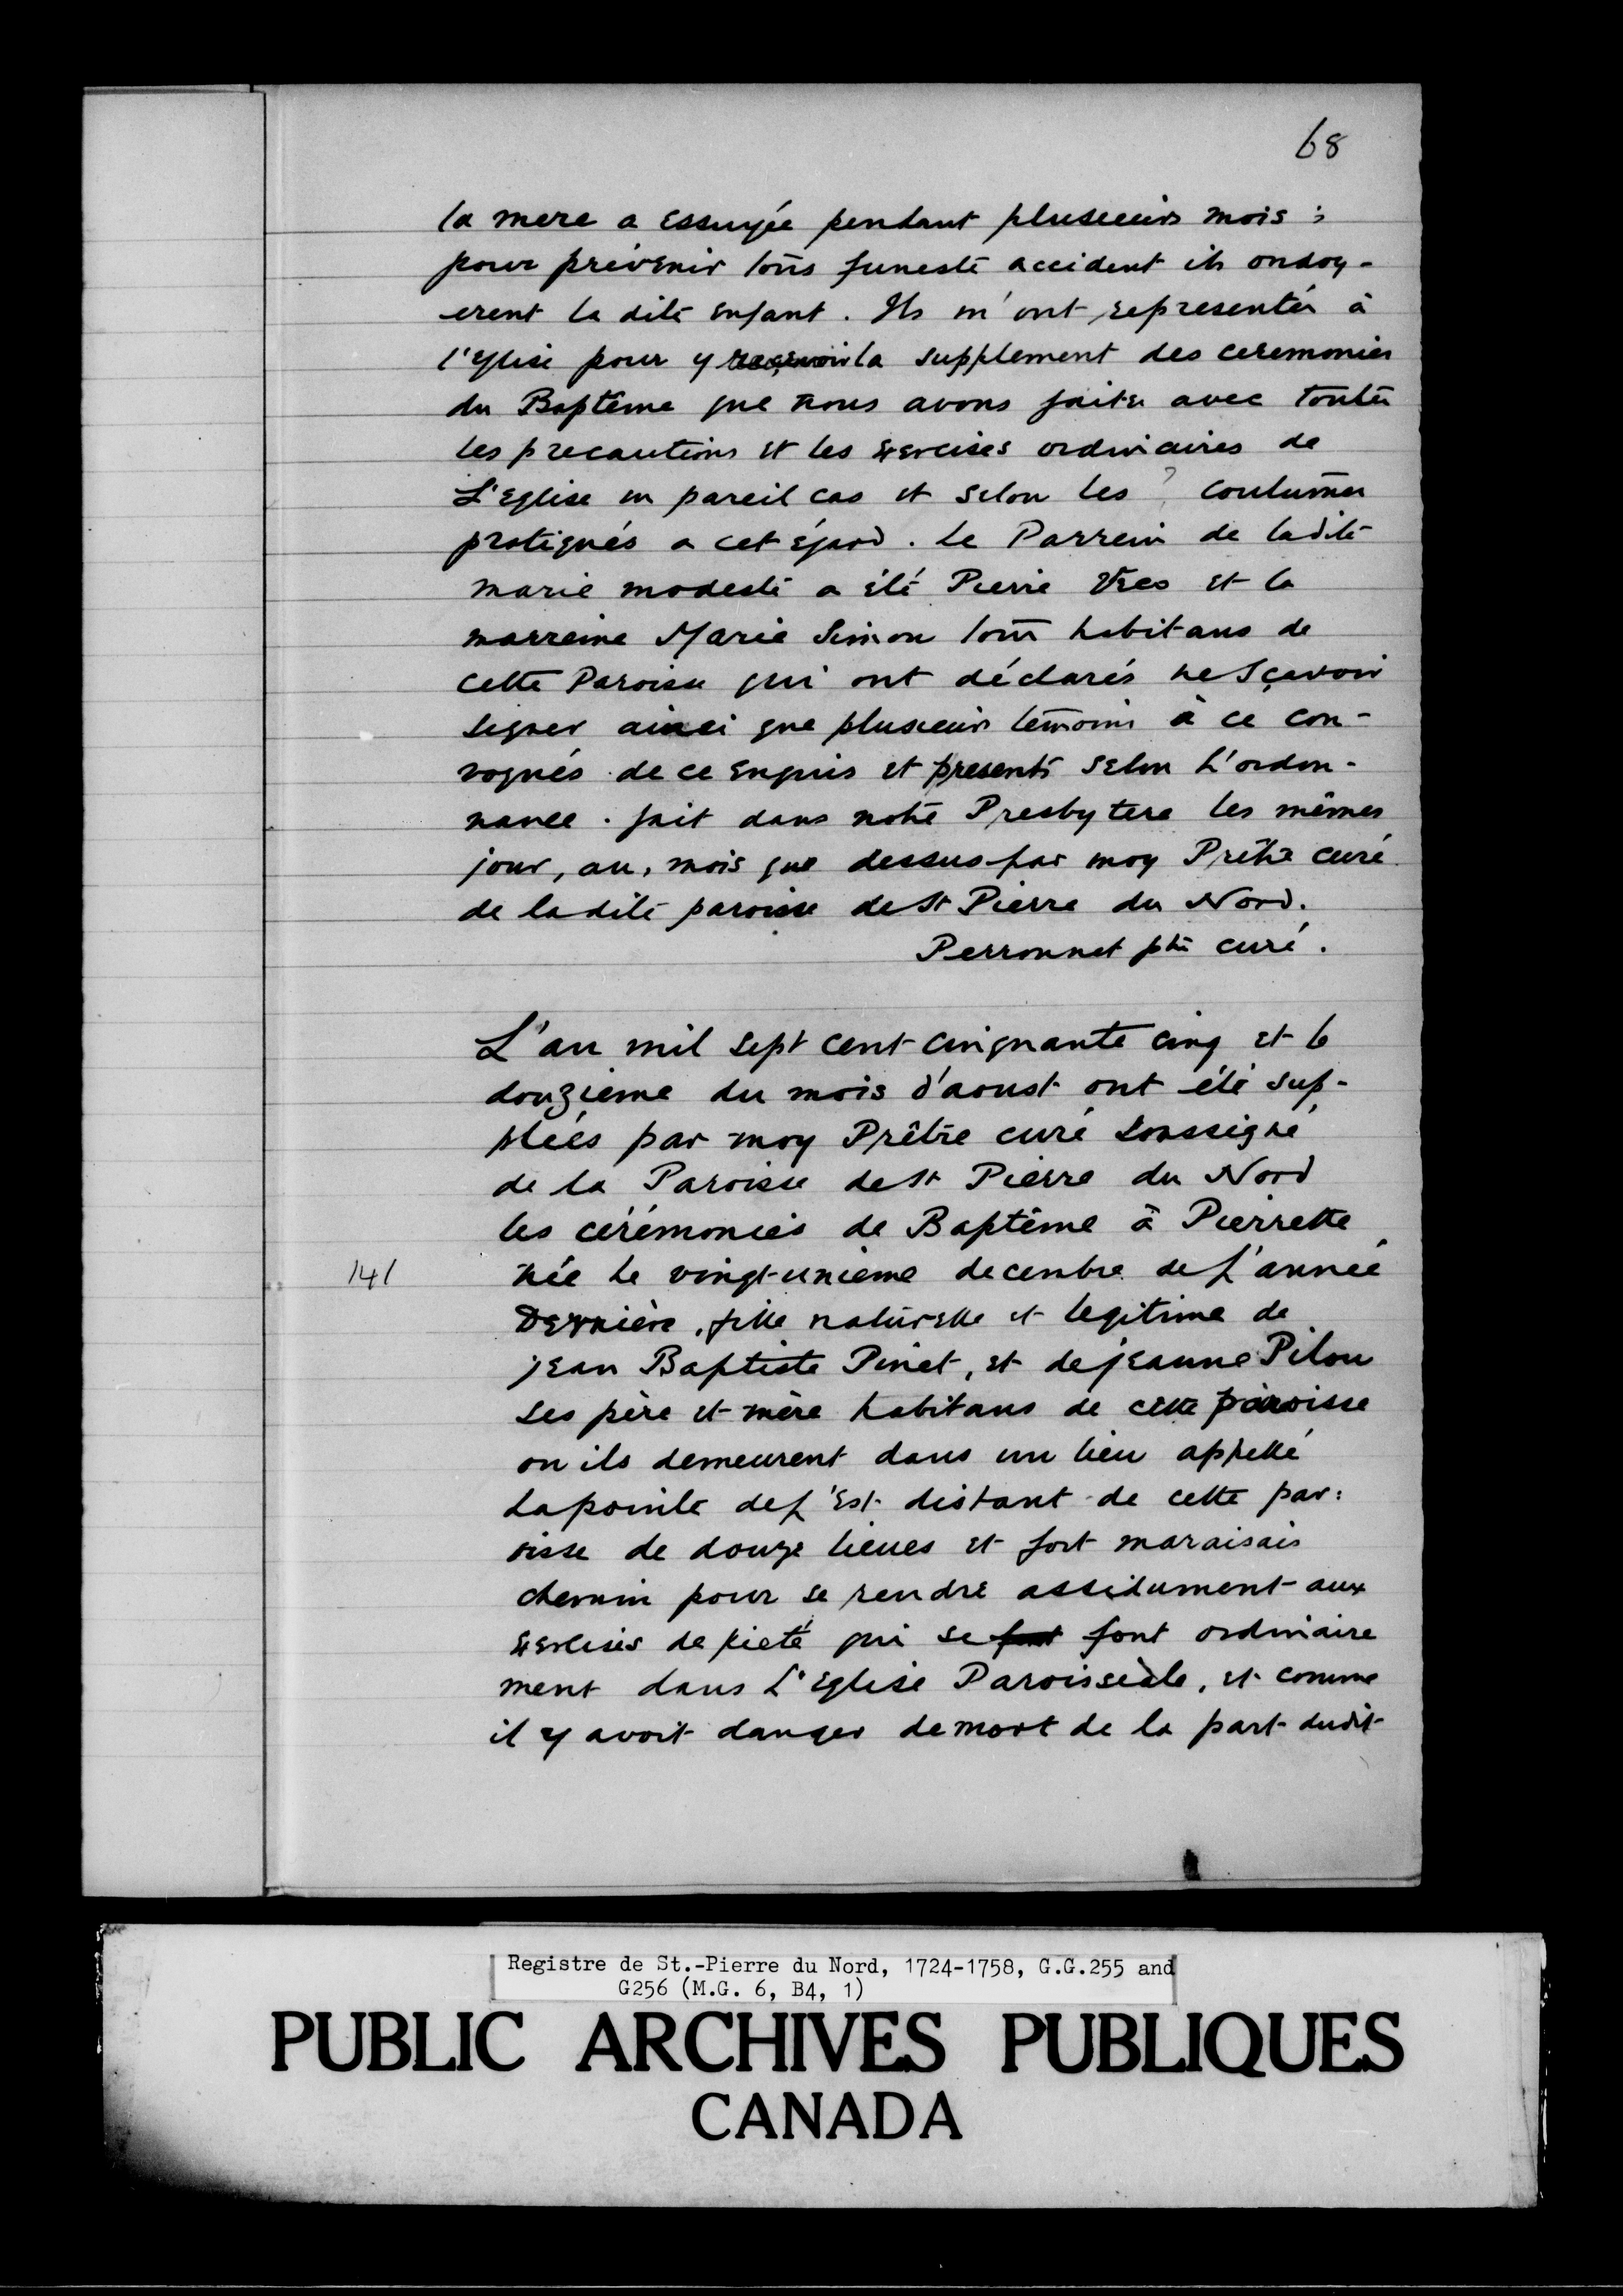 68
la mere a essuyée pendant plusieurs mois ;
pour prévenir tous funeste accident ils ondoy-
erent la dite enfant. Ils m'ont representés à
l'Eglise pour y recevoir la supplement des ceremonies
du Baptême que nous avons faites avec toutes
les precautions et les Exercises ordinaires de
L'Eglise en pareil cas et selon les ? coutumes
pratiqués a cet égard. Le Parrein de ladite
marie modeste a été Pierre et la
marreine Marie Simon tous habitans de
cette Paroisse qui ont déclarés ne Sçavoir
signer ainsi que plusieurs temoins à ce con-
voqués de ce Enquis et presents selon L'ordon-
nance. fait dans notre Presbytere les mêmes
jour, an, mois que dessus par moy Prêtre curé
de ladite paroisse de St Pierre du Nord.
Perronnet ptre curé.
L'an mil sept cent cinquante cinq et le
douzieme du mois d'aoust ont été sup-
pléés par moy Prêtre curé soussigné
de la Paroisse de St Pierre du Nord
les cérémonies de Baptême à Pierrette
141 née le vingt-unieme decembre de L'année
Dernière, fille naturelle et legitime de
jean Baptiste Pinet, et de jeanne Pilou
ses père et mère habitans de cette paroisse
ou ils demeurent dans un lieu appellé
Lapointe de L'Est distant de cette par:
oisse de douze lieues et fort maraisais
chemin pour se rendre assidument aux
Exercises de pieté qui se font font ordinaire
ment dans L'Eglise Paroissèale, et comme
il y avoit danger de mort de la part dudit
Registre de St.-Pierre du Nord, 1724-1758, G.G.255 and
G256 (M.G. 6, B4, 1)
PUBLIC ARCHIVES PUBLIQUES
CANADA